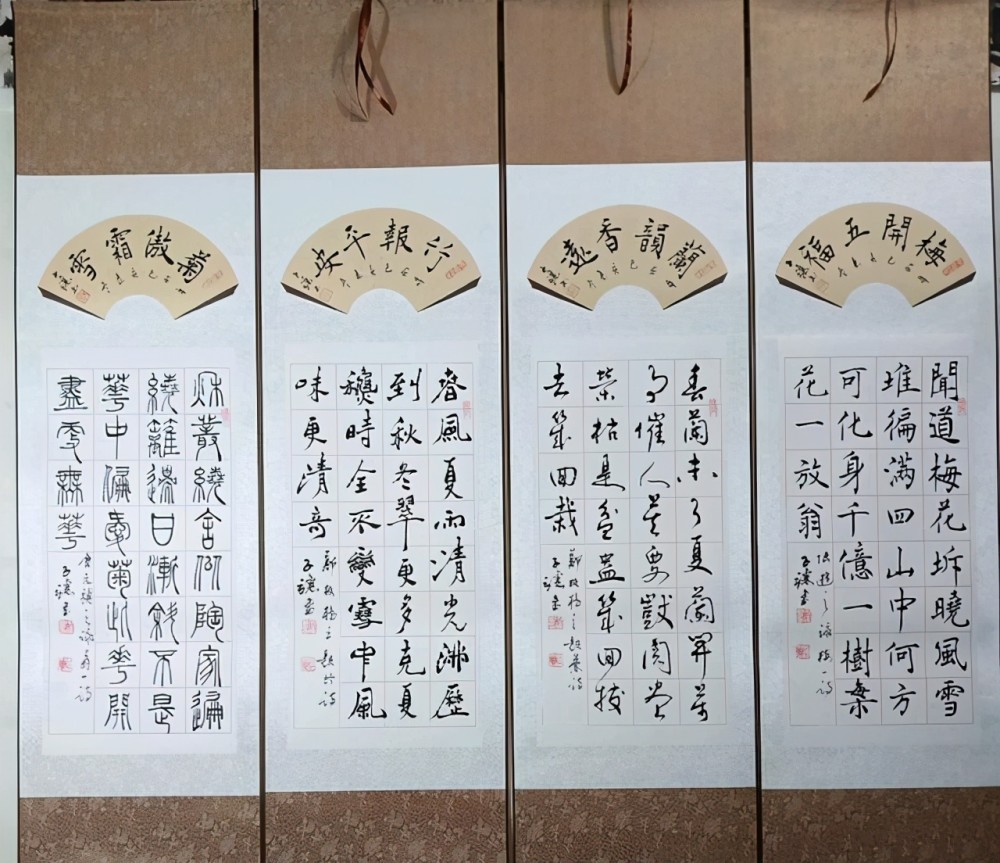 梅開五福
聞道梅花坼曉風雪
堆徧滿四山中何方
可化身千億一樹梅
花一放翁
陸游之詠梅一詩
蘭韻香遠
春蘭未了夏蘭開萬
事催人莫要獃閱盡
榮枯是盆盎幾回拔
去幾回栽
鄭板橋之題蘭詩
竹報平安
春風夏雨清光歷
到秋冬翠更多夏
時全不變雪中風
味更清奇
鄭板橋之題竹詩
菊傲霜雪
秋叢繞舍似陶家遍
繞籬邊日漸斜不是
華中偏愛菊此華開
盡更無華
唐元稹之詠菊一詩